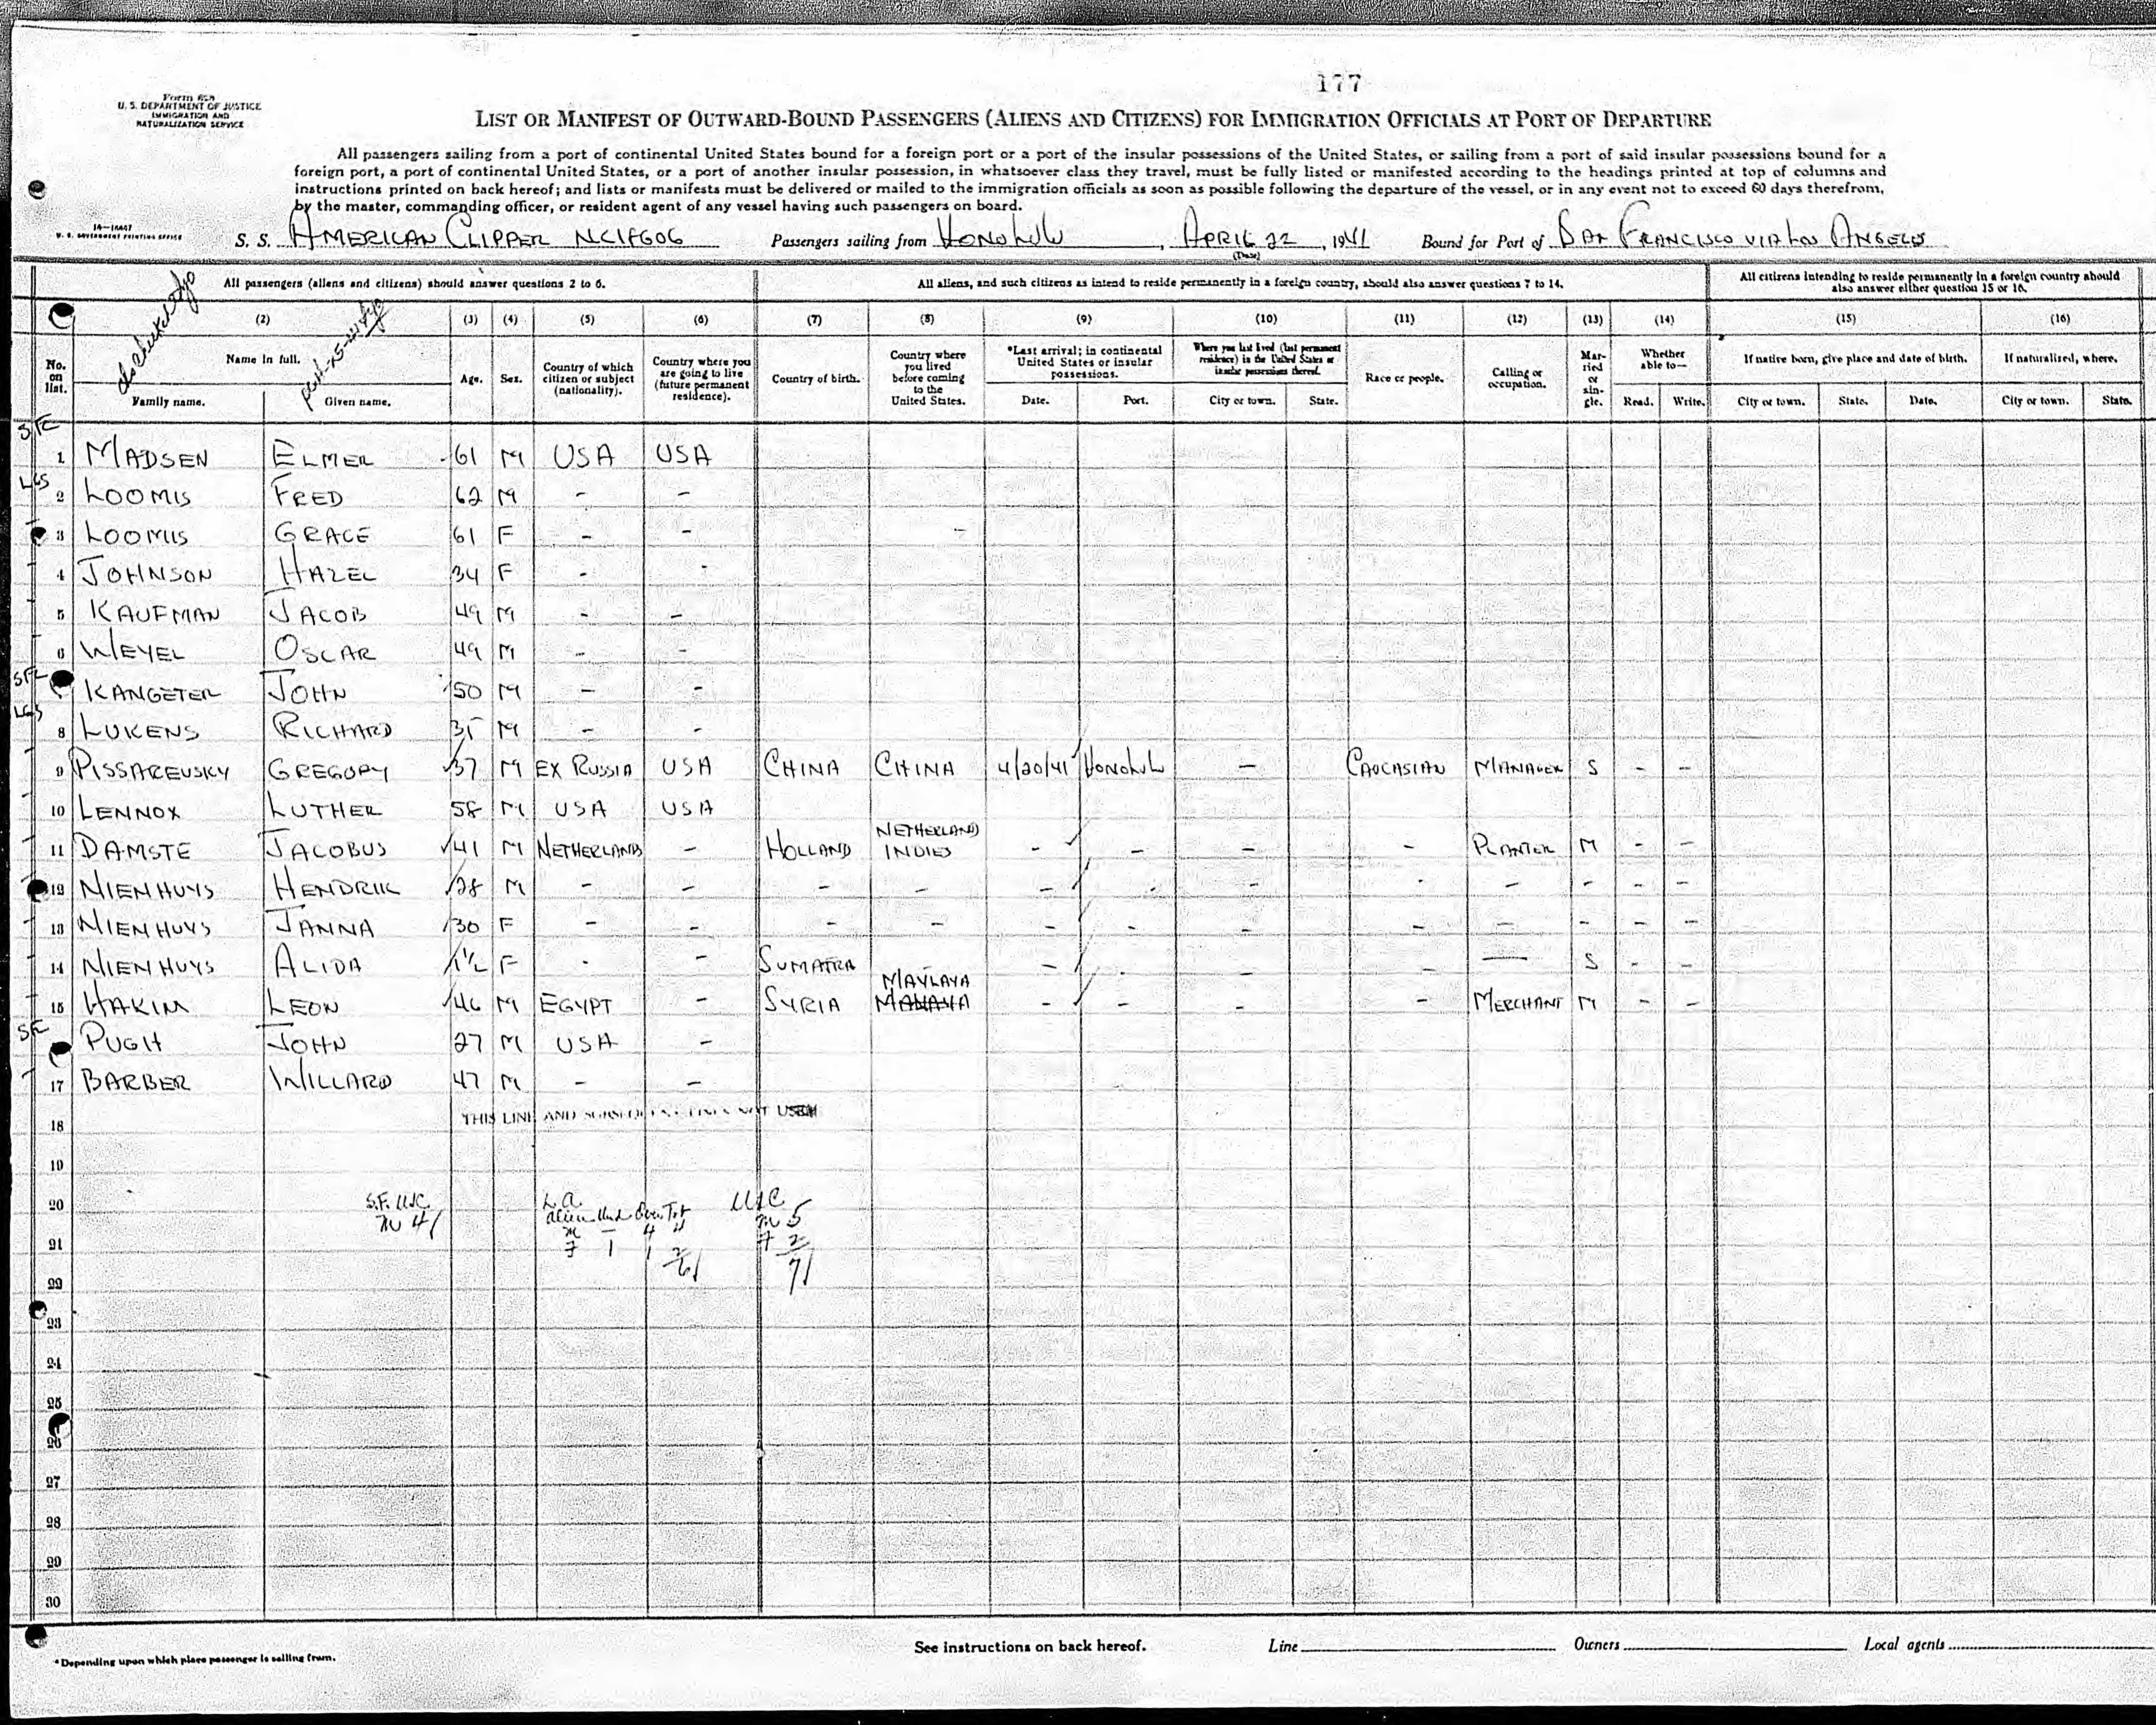 177
Form 628
U. S. DEPARTMENT OF JUSTICE
IMMIGRATION AND
NATURALIZATION SERVICE
LIST OR MANIFEST OF OUTWARD-BOUND PASSENGERS (ALIENS AND CITIZENS) FOR IMMIGRATION OFFICIALS AT PORT OF DEPARTURE
All passengers sailing from a port of continental United States bound for a foreign port or a port of the insular possessions of the United States, or sailing from a port of said insular possessions bound for a
foreign port, a port of continental United States, or a port of another insular possession, in whatsoever class they travel, must be fully listed or manifested according to the headings printed at top of columns and
instructions printed on back hereof; and lists or manifests must be delivered or mailed to the immigration officials as soon as possible following the departure of the vessel, or in any event not to exceed 60 days therefrom,
by the master, commanding officer, or resident agent of any vessel having such passengers on board.
U. S. GOVERNMENT PRINTING OFFICE
S. S. AMERICAN CLIPPER NC18606 Passengers sailing from HONOLULU, APRIL 22, 1941 Bound for Port of SAN FRANCISCO VIA LOS ANGELES
(Date)
All passengers (aliens and citizens) should answer questions 2 to 6. All aliens, and such citizens as intend to reside permanently in a foreign country, should also answer questions 7 to 14. All citizens intending to reside permanently in a foreign country should
also answer either question 15 or 16.
(2) (3) (4) (5) (6) (7) (8) (9) (10) (11) (12) (13) (14) (15) (16)
No. on list. Name in full. Family name. Given name. Age. Sex. Country of which citizen or subject (nationality). Country where you are going to live (future permanent residence). Country of birth. Country where you lived before coming to the United States. *Last arrival; in continental United States or insular possessions. Date. Port. Where you last lived (last permanent residence) in the United States or insular possessions thereof. City or town. State. Race or people. Calling or occupation. Married or single. Whether able to— Read. Write. If native born, give place and date of birth. City or town. State. Date. If naturalized, where. City or town. State.
SF
1 MADSEN ELMER 61 M USA USA
LGS
2 LOOMIS FRED 62 M - -
3 LOOMIS GRACE 61 F - - -
4 JOHNSON HAZEL 34 F - -
5 KAUFMAN JACOB 49 M - -
6 WEYEL OSCAR 49 M - -
SF
KANGETER JOHN 50 M - -
LGS
8 LUKENS RICHARD 35 M - -
9 PISSAREVSKY GREGORY 37 M EX RUSSIA USA CHINA CHINA 4/20/41 HONOLULU - CAUCASIAN MANAGER S - -
10 LENNOX LUTHER 58 M USA USA
11 DAMSTE JACOBUS 41 M NETHERLANDS - HOLLAND NETHERLAND INDIES - - - - PLANTER M - -
12 NIENHUYS HENDRIK 28 M - - - - - - - - - - - -
13 NIENHUYS JANNA 30 F - - - - - - - - - - - -
14 NIENHUYS ALIDA 1½ F - - SUMATRA - - - - — S - -
MAYLAYA
15 HAKIM LEON 46 M EGYPT - SYRIA - - - - MERCHANT M - -
SF
PUGH JOHN 27 M USA -
17 BARBER WILLARD 47 M - -
18 THIS LINE AND SUBSEQUENT LINES NOT USED
19
20 S.F. USC L.A. USC
M 4 M 5
21
22
23
24
25
26
27
28
29
30
See instructions on back hereof. Line Owners Local agents
*Depending upon which place passenger is sailing from.